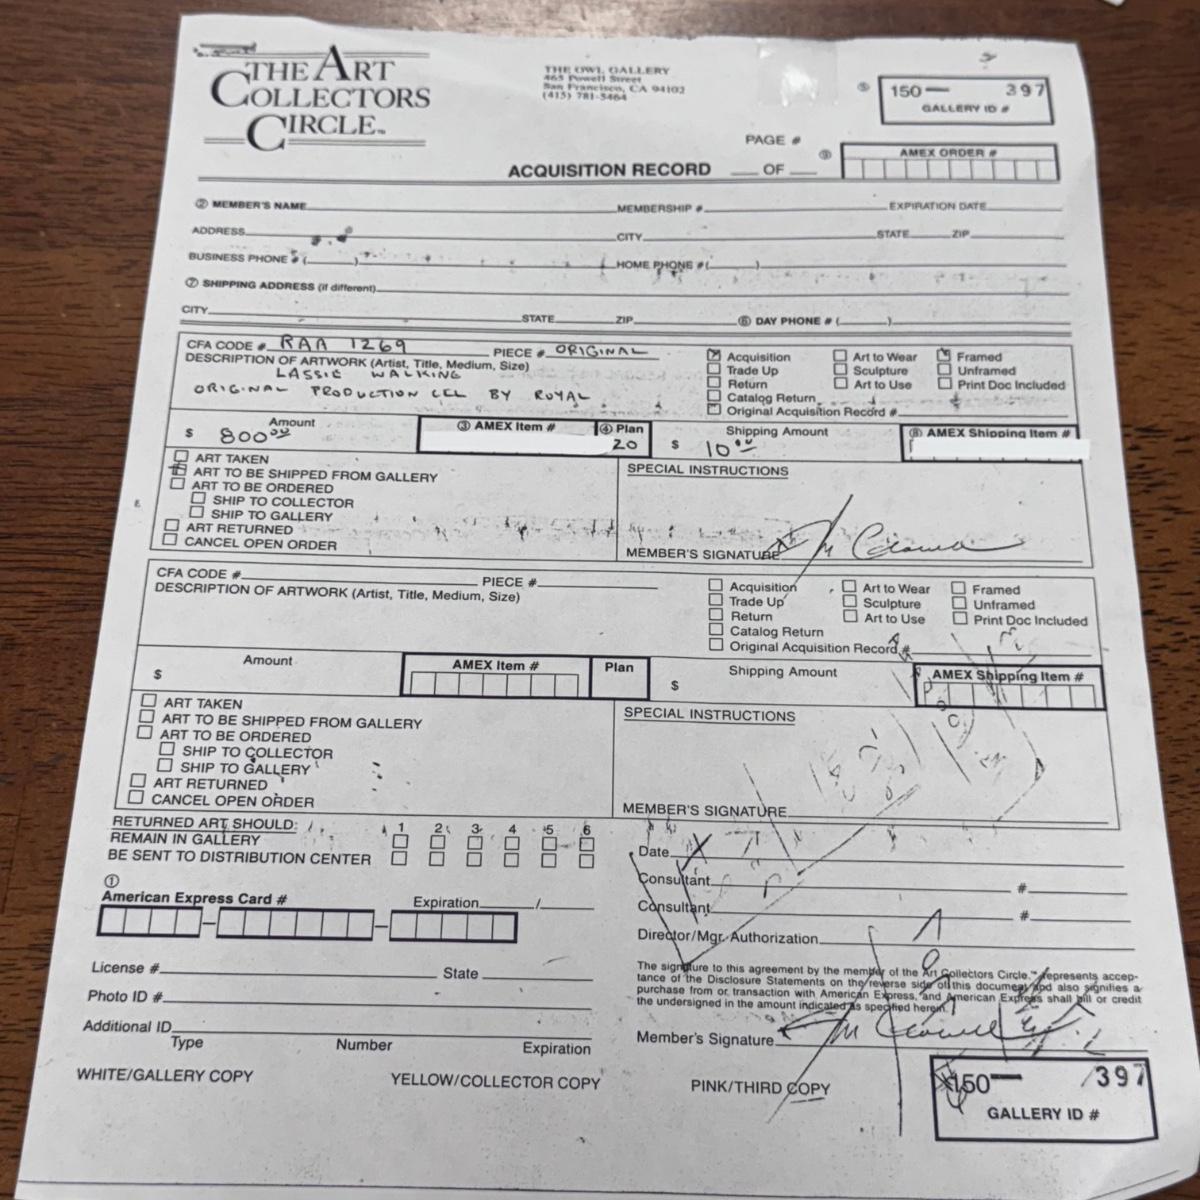 THE ART COLLECTORS CIRCLE™
THE OWL GALLERY
465 Powell Street
San Francisco, CA 94102
(415) 781-5464
⑤ 150— 397
GALLERY ID #
PAGE #
ACQUISITION RECORD ___ OF ___
⑨ AMEX ORDER #
② MEMBER'S NAME MEMBERSHIP # EXPIRATION DATE
ADDRESS CITY STATE ZIP
BUSINESS PHONE # ( ) HOME PHONE # ( )
⑦ SHIPPING ADDRESS (if different)
CITY STATE ZIP ⑥ DAY PHONE # ( )
CFA CODE # RAA 1269 PIECE # ORIGINAL
DESCRIPTION OF ARTWORK (Artist, Title, Medium, Size)
LASSIE WALKING
ORIGINAL PRODUCTION CEL BY ROYAL
Acquisition Art to Wear Framed
Trade Up Sculpture Unframed
Return Art to Use Print Doc Included
Catalog Return
Original Acquisition Record #
Amount ③ AMEX Item # ④ Plan Shipping Amount ⑧ AMEX Shipping Item #
$ 800.00 20 $ 10.00
ART TAKEN
ART TO BE SHIPPED FROM GALLERY
ART TO BE ORDERED
SHIP TO COLLECTOR
SHIP TO GALLERY
ART RETURNED
CANCEL OPEN ORDER
SPECIAL INSTRUCTIONS
MEMBER'S SIGNATURE
CFA CODE # PIECE #
DESCRIPTION OF ARTWORK (Artist, Title, Medium, Size)
Acquisition Art to Wear Framed
Trade Up Sculpture Unframed
Return Art to Use Print Doc Included
Catalog Return
Original Acquisition Record #
Amount AMEX Item # Plan Shipping Amount AMEX Shipping Item #
$ $
ART TAKEN
ART TO BE SHIPPED FROM GALLERY
ART TO BE ORDERED
SHIP TO COLLECTOR
SHIP TO GALLERY
ART RETURNED
CANCEL OPEN ORDER
SPECIAL INSTRUCTIONS
MEMBER'S SIGNATURE
RETURNED ART SHOULD: 1 2 3 4 5 6
REMAIN IN GALLERY
BE SENT TO DISTRIBUTION CENTER
①
American Express Card # Expiration /
License # State
Photo ID #
Additional ID
Type Number Expiration
Date
Consultant #
Consultant #
Director/Mgr. Authorization
The signature to this agreement by the member of the Art Collectors Circle™ represents accep-
tance of the Disclosure Statements on the reverse side of this document and also signifies a
purchase from or transaction with American Express, and American Express shall bill or credit
the undersigned in the amount indicated as specified herein.
Member's Signature
WHITE/GALLERY COPY YELLOW/COLLECTOR COPY PINK/THIRD COPY
150— 397
GALLERY ID #